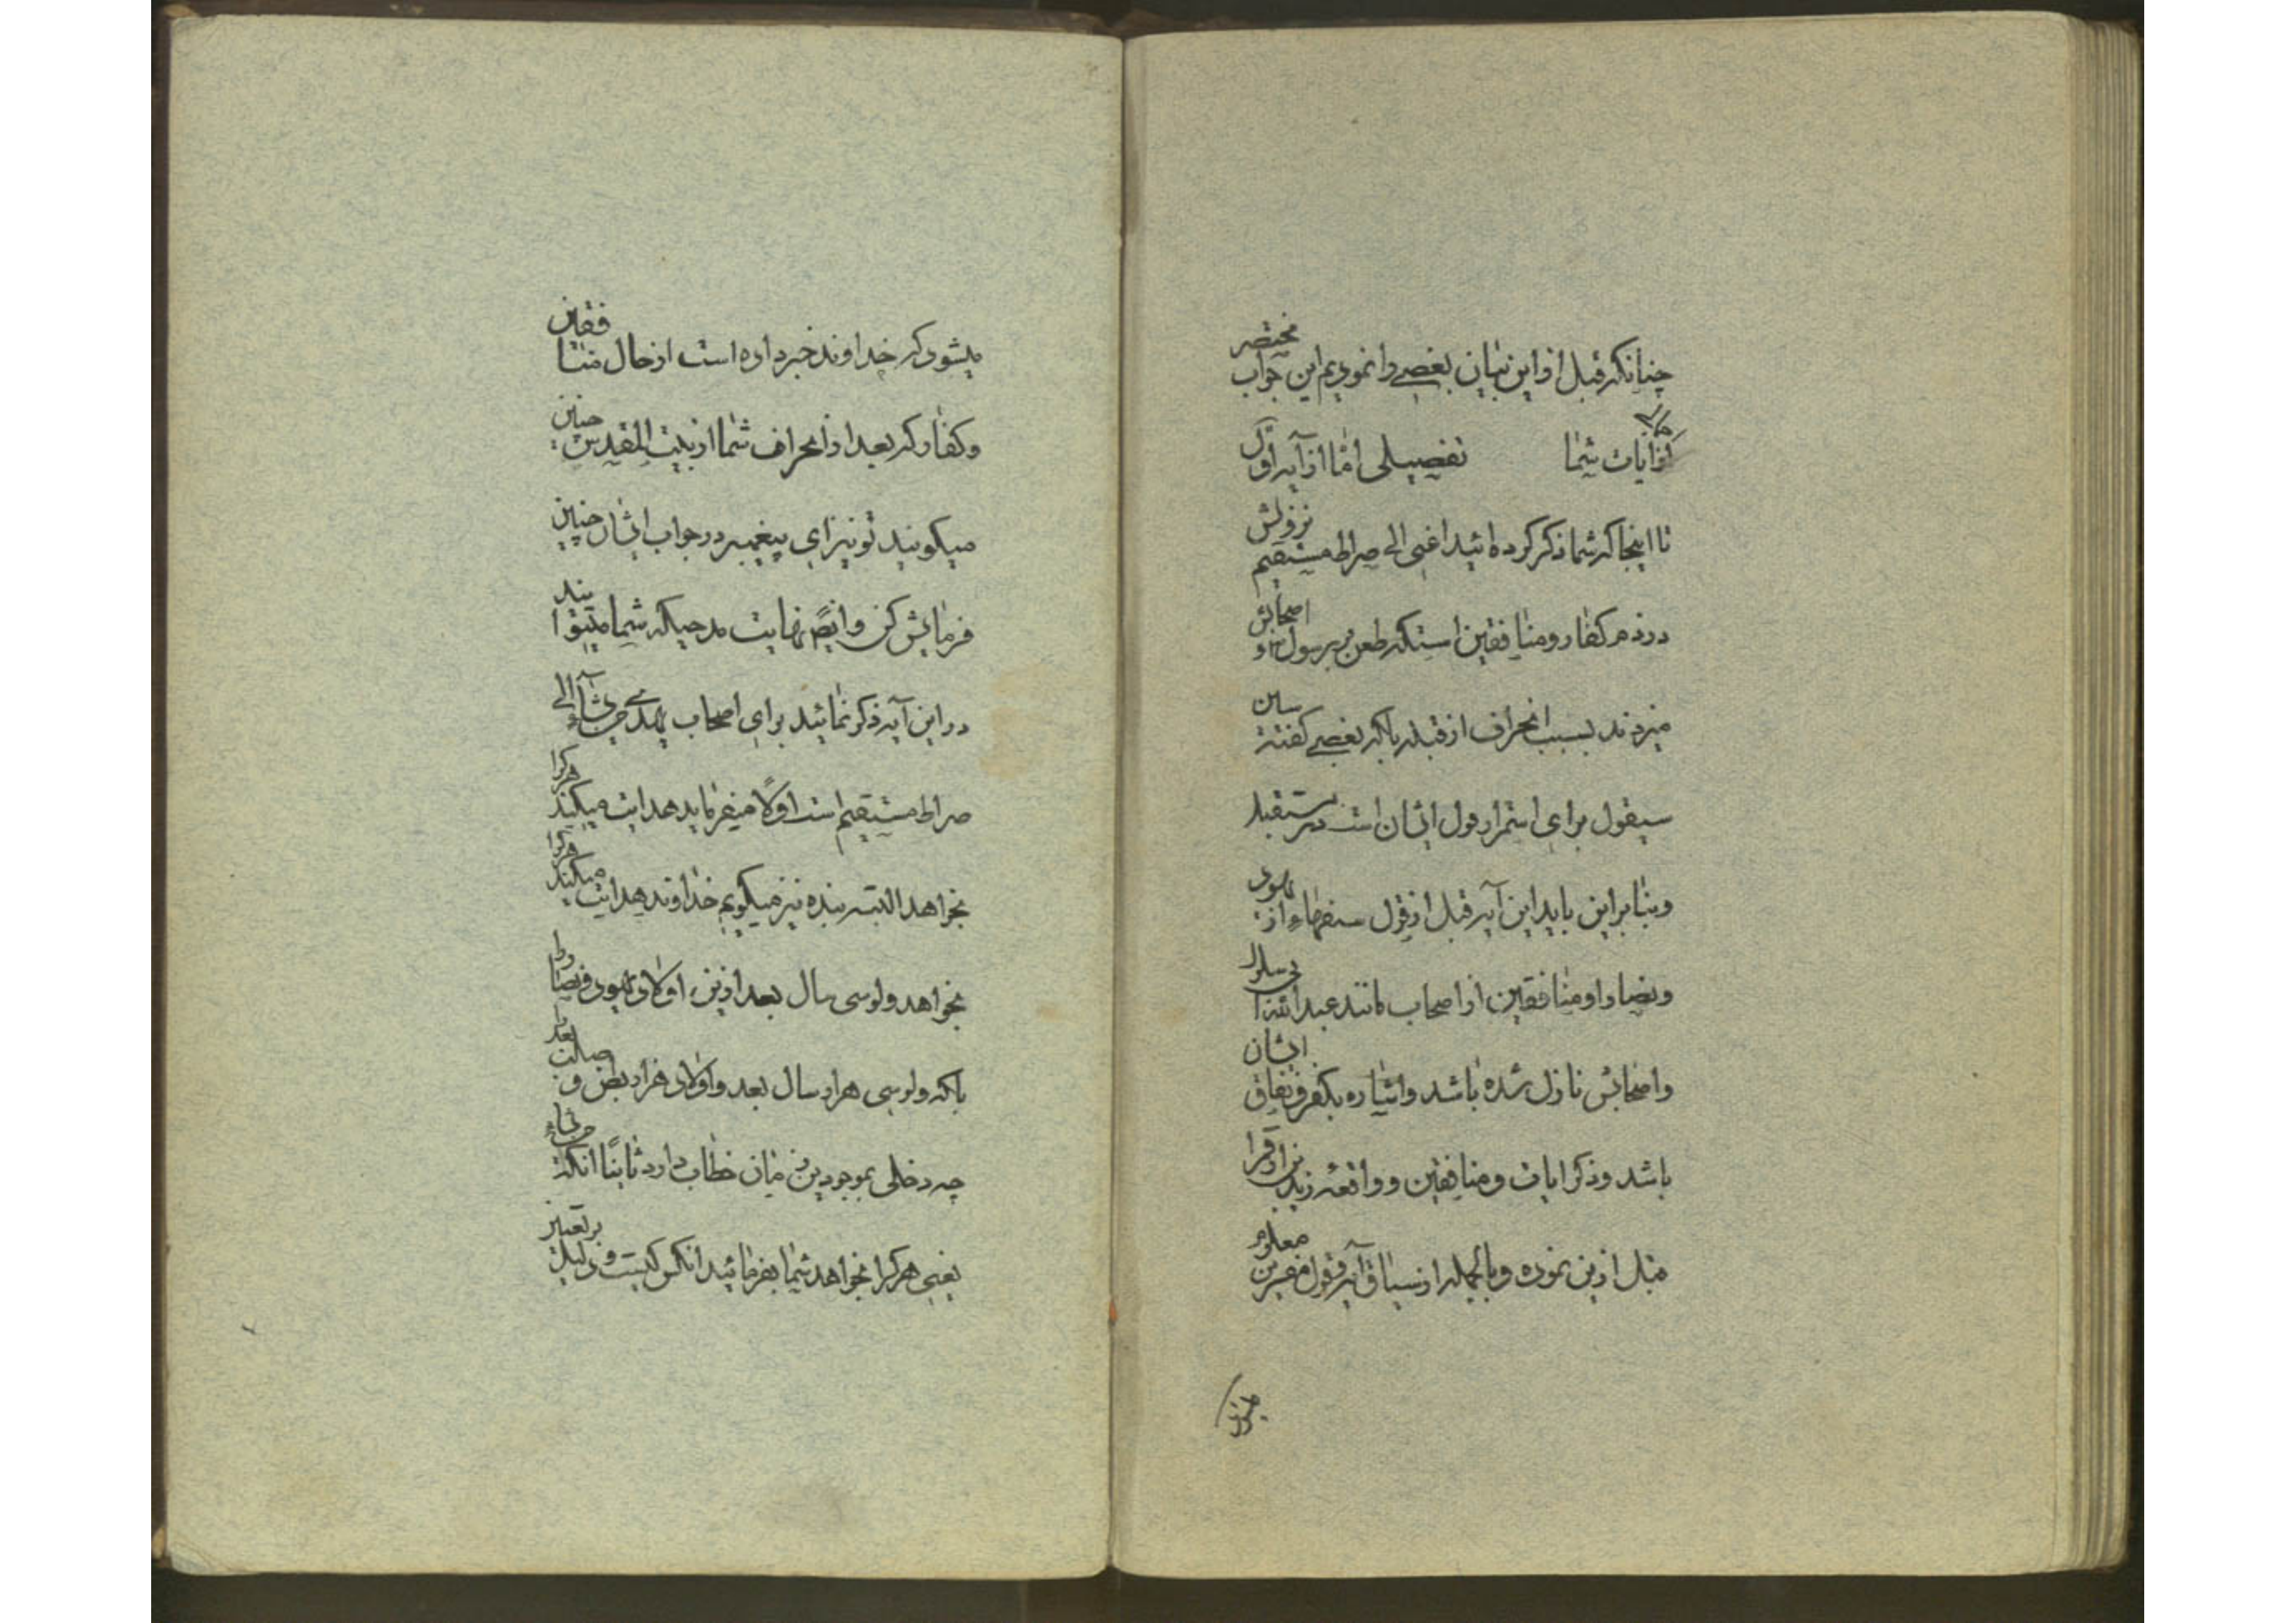 چنانکه قبل از این بیان بغضی وا نمودیم این جواب مختصر
از ایات شما تفصیلی اما از آیه اول
تا اینجا که شما ذکر کرده ائید اغنی الی صراط مستقیم نزولش
در ذم کفار و منافقین است که طعن بر رسول و اصحابش
میزدند بسبب انحراف از قبله بلکه بعضی گفته
سیقول برای استمرار قول ایشان است
و بنا براین باید این آیه قبل از قول سفهاء از یهود
و نصارا و منافقین از اصحاب مانند عبدالله
و اصحابش نازل شده باشد و اشاره بکفر و نفاق ایشان
باشد و ذکر ایات و منافقین و واقعه
قبل ازین نموده و بالجمله از سیاق آیه و قول مفسرین معلوم
میشود
میشود که خداوند خبر داده است از حال منافقین
و کفار که بعد از انحراف شما از بیت المقدس چنین
میگویند تو نیز ای پیغمبر در جواب ایشان چنین
فرمایش کن و ایضا نهایت مدحیکه شما میتوانید
در این آیه ذکر نمائید برای اصحاب یهدی من یشاء الی
صراط مستقیم است اولا میفرماید هدایت میکند هرکرا
بخواهد البته بنده نیز میگویم خداوند هدایت میکند هرکرا
بخواهد ولو سی سال بعد ازین اولاد یهود و نصارا
بلکه ولو سی هزار سال بعد و اولاد هزار بطن و
چه دخلی بموجودین زمان خطاب دارد ثانیا انکه من یشاء
یعنی هرکرا بخواهد شما بفرمائید انکس کیست و دلیل بر تعیین